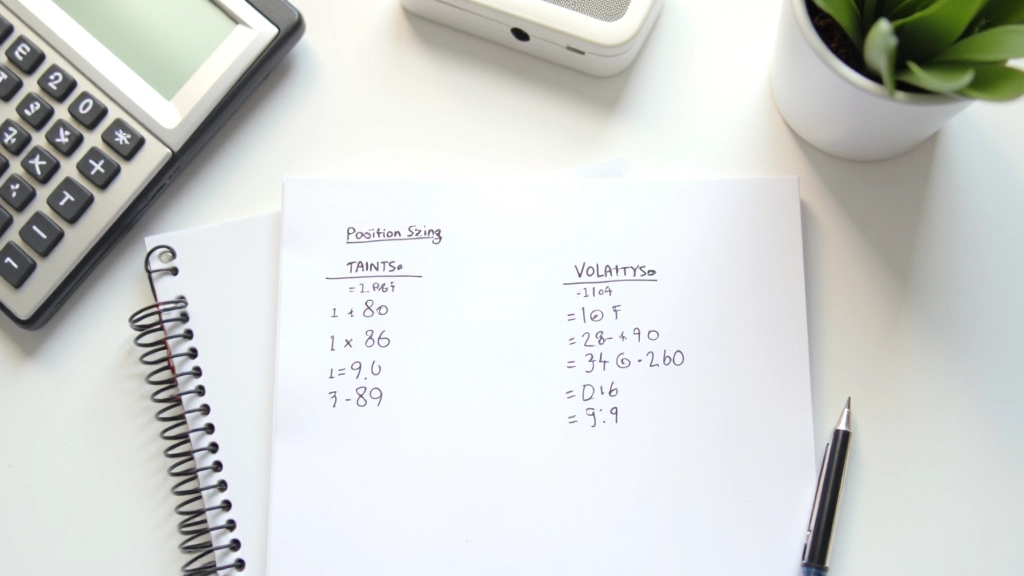 Position Szing
TAINTS.
1 + 80
1 x 86
1=9.0
3-89
VOLAttYS.
-1104
=10 F
=28-+90
=346.260
=016
=9:9